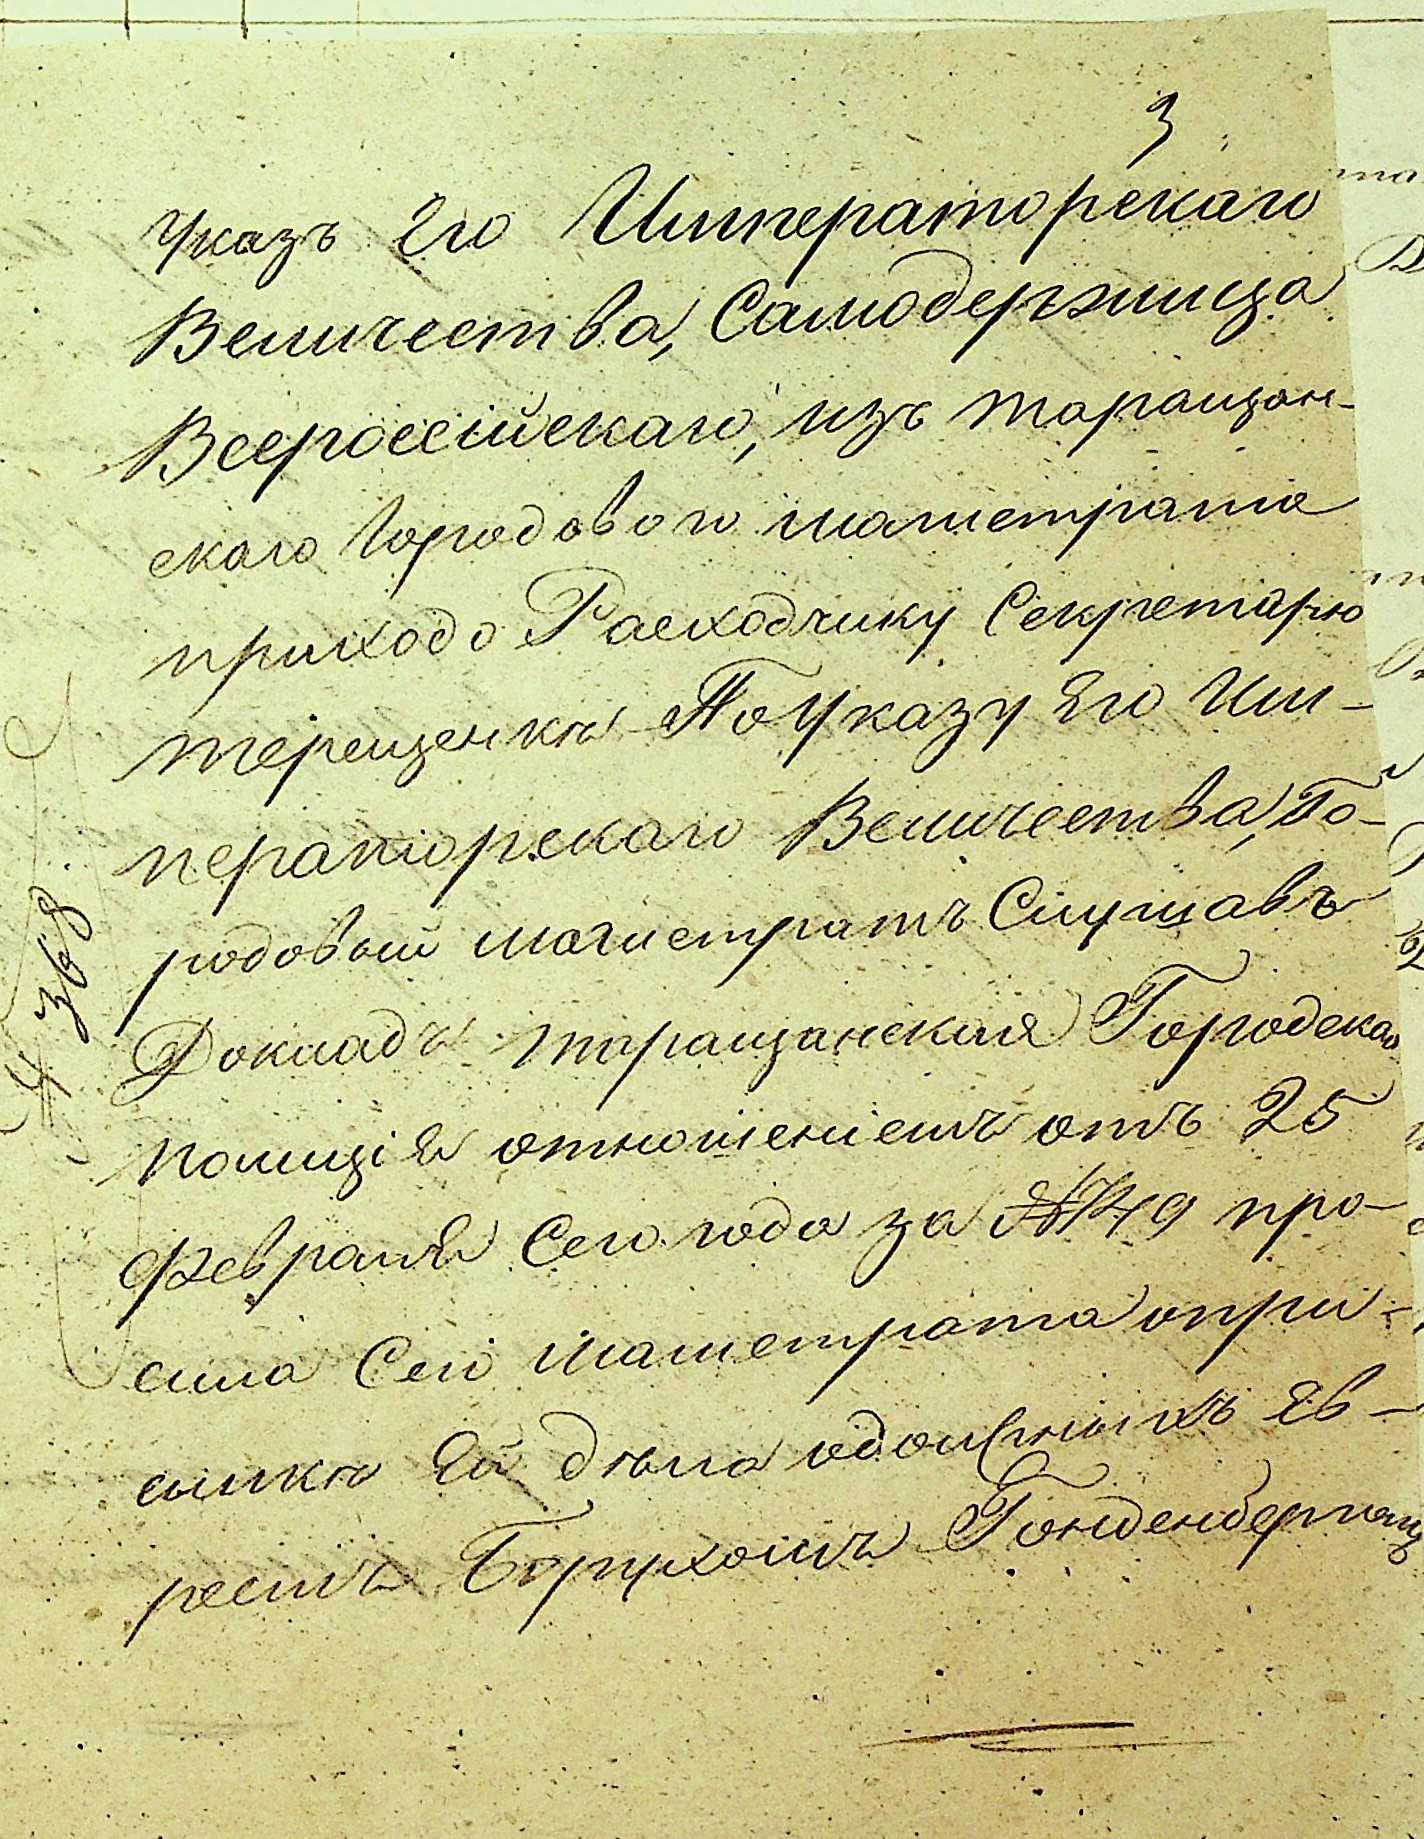 3
Указъ Его Императорскаго
Величества, Самодержица
Всероссійскаго, изъ таращан-
скаго Городоваго магистрата
приходо Расходчику Секретарю
терещенкѣ По Указу Его Им-
ператорскаго Величества, Го-
родовый магистратъ Слушавъ
Докладъ таращанская Городская
полиція отношеніемъ отъ 25
февраля Сего года за № 749 про-
сила Сей Магистрата опри-
сылкѣ Ей дѣла
ремъ Борухомъ
368